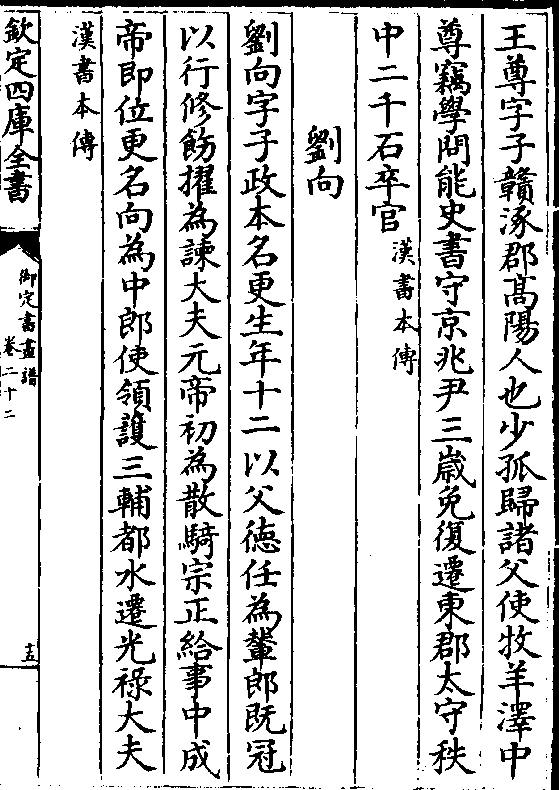 王尊字子贛涿郡高陽人也少孤歸諸父使牧羊澤中
尊竊學問能史書守京兆尹三歲免復遷東郡太守秩
中二千石卒官漢書本傳
劉向
劉向字子政本名更生年十二以父德任為輦郎既冠
以行修飭擢為諫大夫元帝初為散騎宗正給事中成
帝即位更名向為中郎使領護三輔都水遷光祿大夫
漢書本傳
欽定四庫全書
御定書畫譜
卷二十二
十五